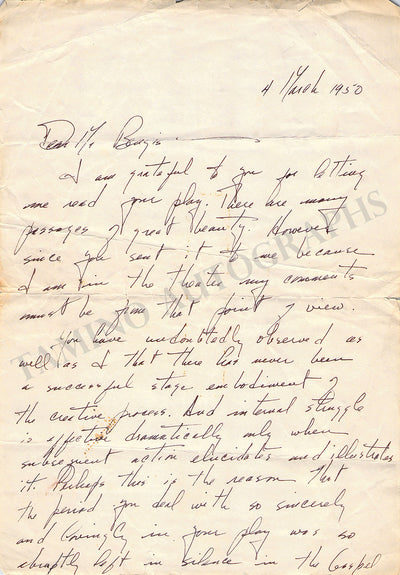 4 March 1950
Dear Mr.
I am grateful to you for letting
me read your play. There are many
passages of great beauty. However
since you sent it to me because
I am in the theatre my comments
must be from that point of view.
You have undoubtedly observed as
well as I that there has never been
a successful stage embodiment of
the creative process. And internal struggle
is effective dramatically only when
subsequent action elucidates and illustrates
it. Perhaps this is the reason that
the period you deal with so sincerely
and lovingly in your play was so
abruptly left in silence in the Gospel
TAMINO AUTOGRAPHS